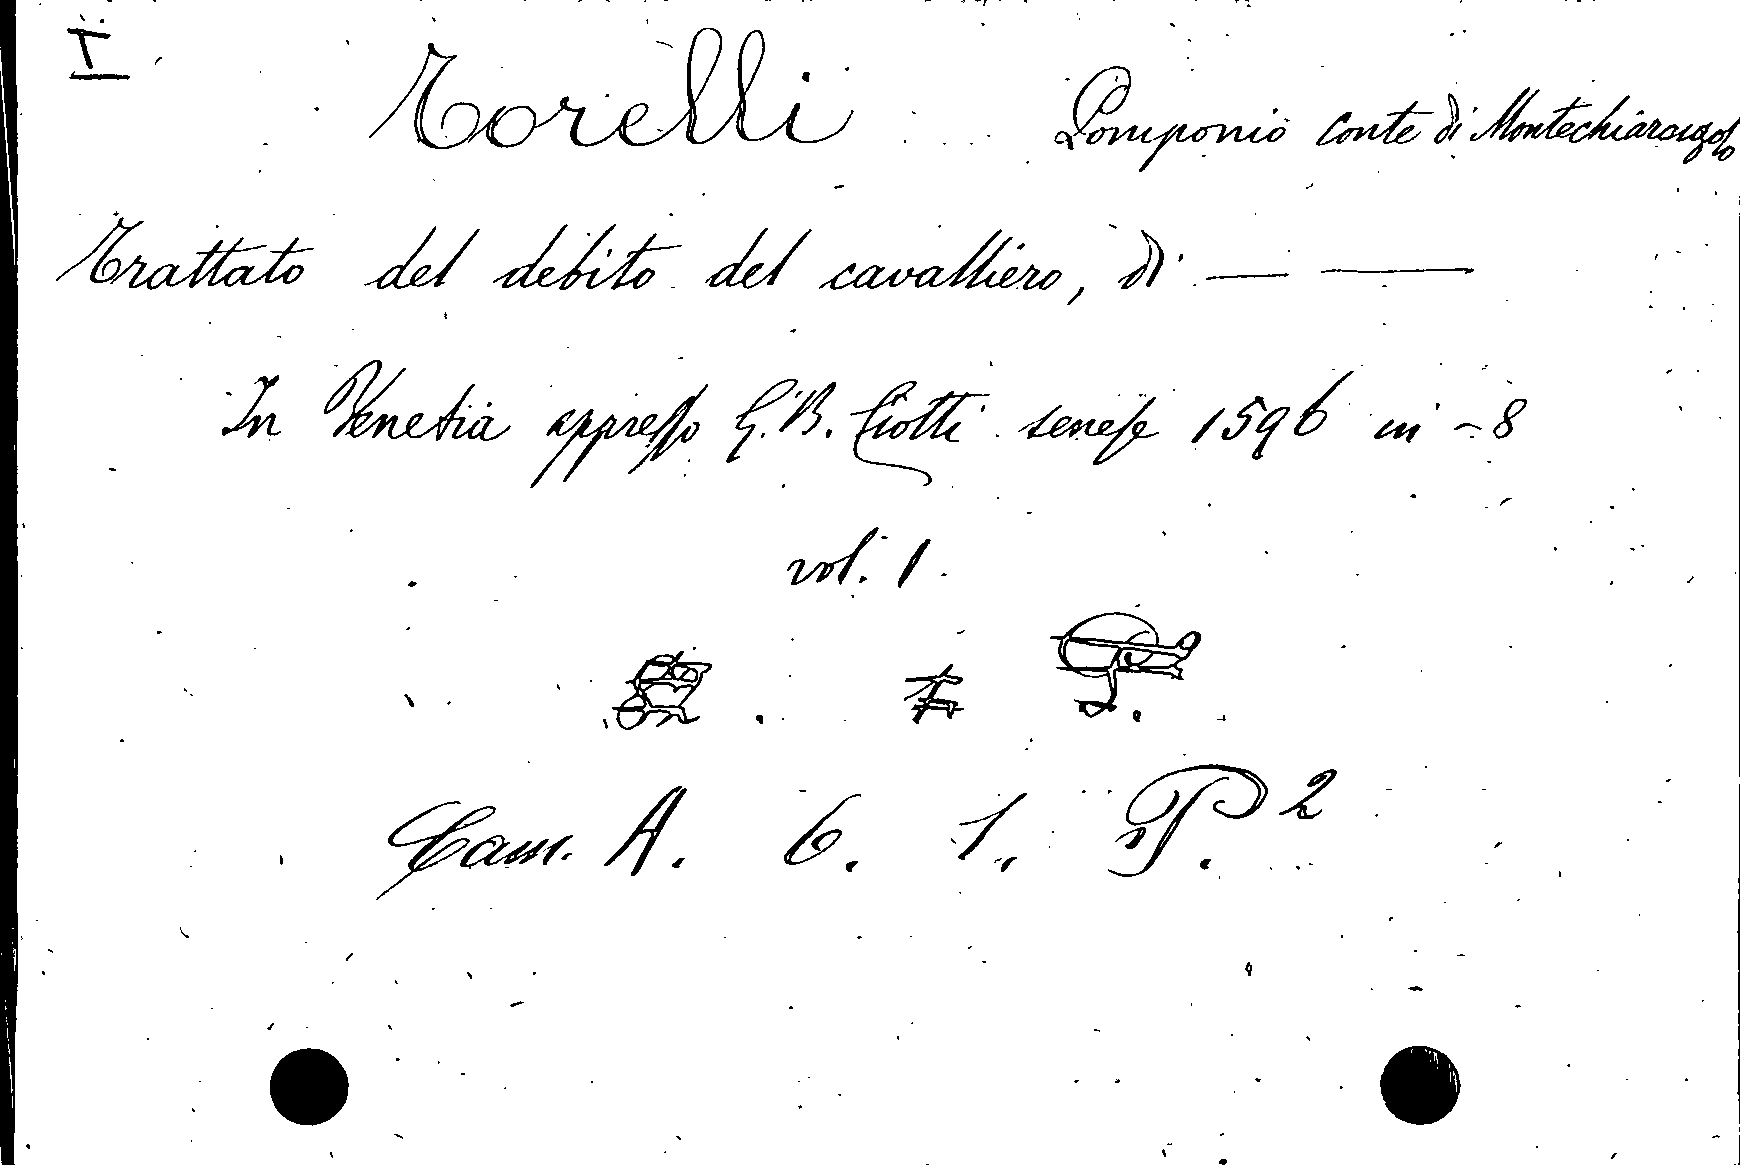 I
Torelli Pomponio conte di Montechiarugolo
Trattato del debito del cavalliero, di — —
In Venetia appresso G. B. Ciotti senese 1596 in -8
vol. 1.
Cam. A. 6. 1. P. 2